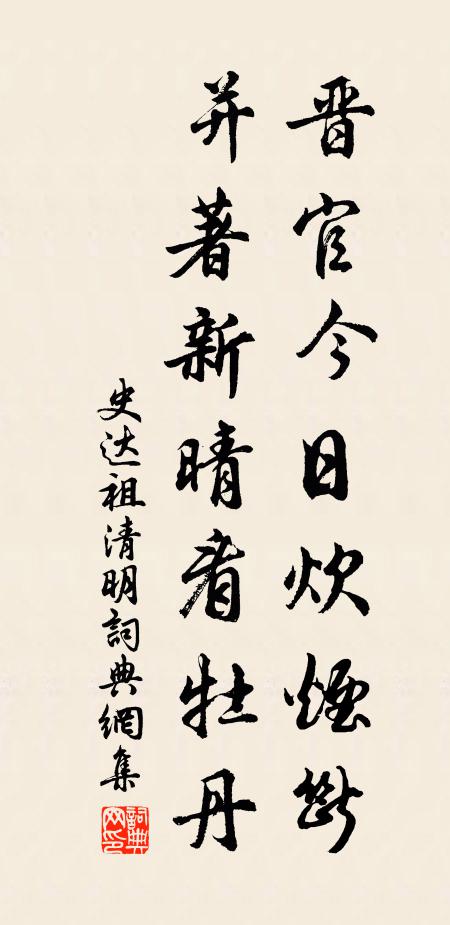 晋官今日炊煙斷
并著新晴看牡丹
史达祖清明詞典網集
詞典网印